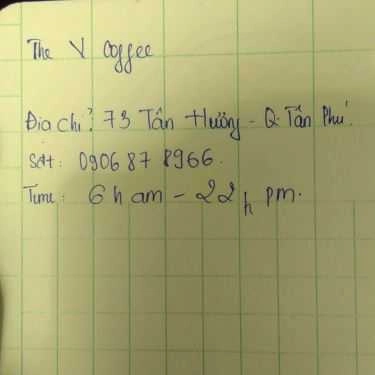 The V Coffee
Địa chỉ: 73 Tân Hương - Q. Tân Phú.
Sđt: 0906 87 8966.
Time: 6h am - 22h pm.